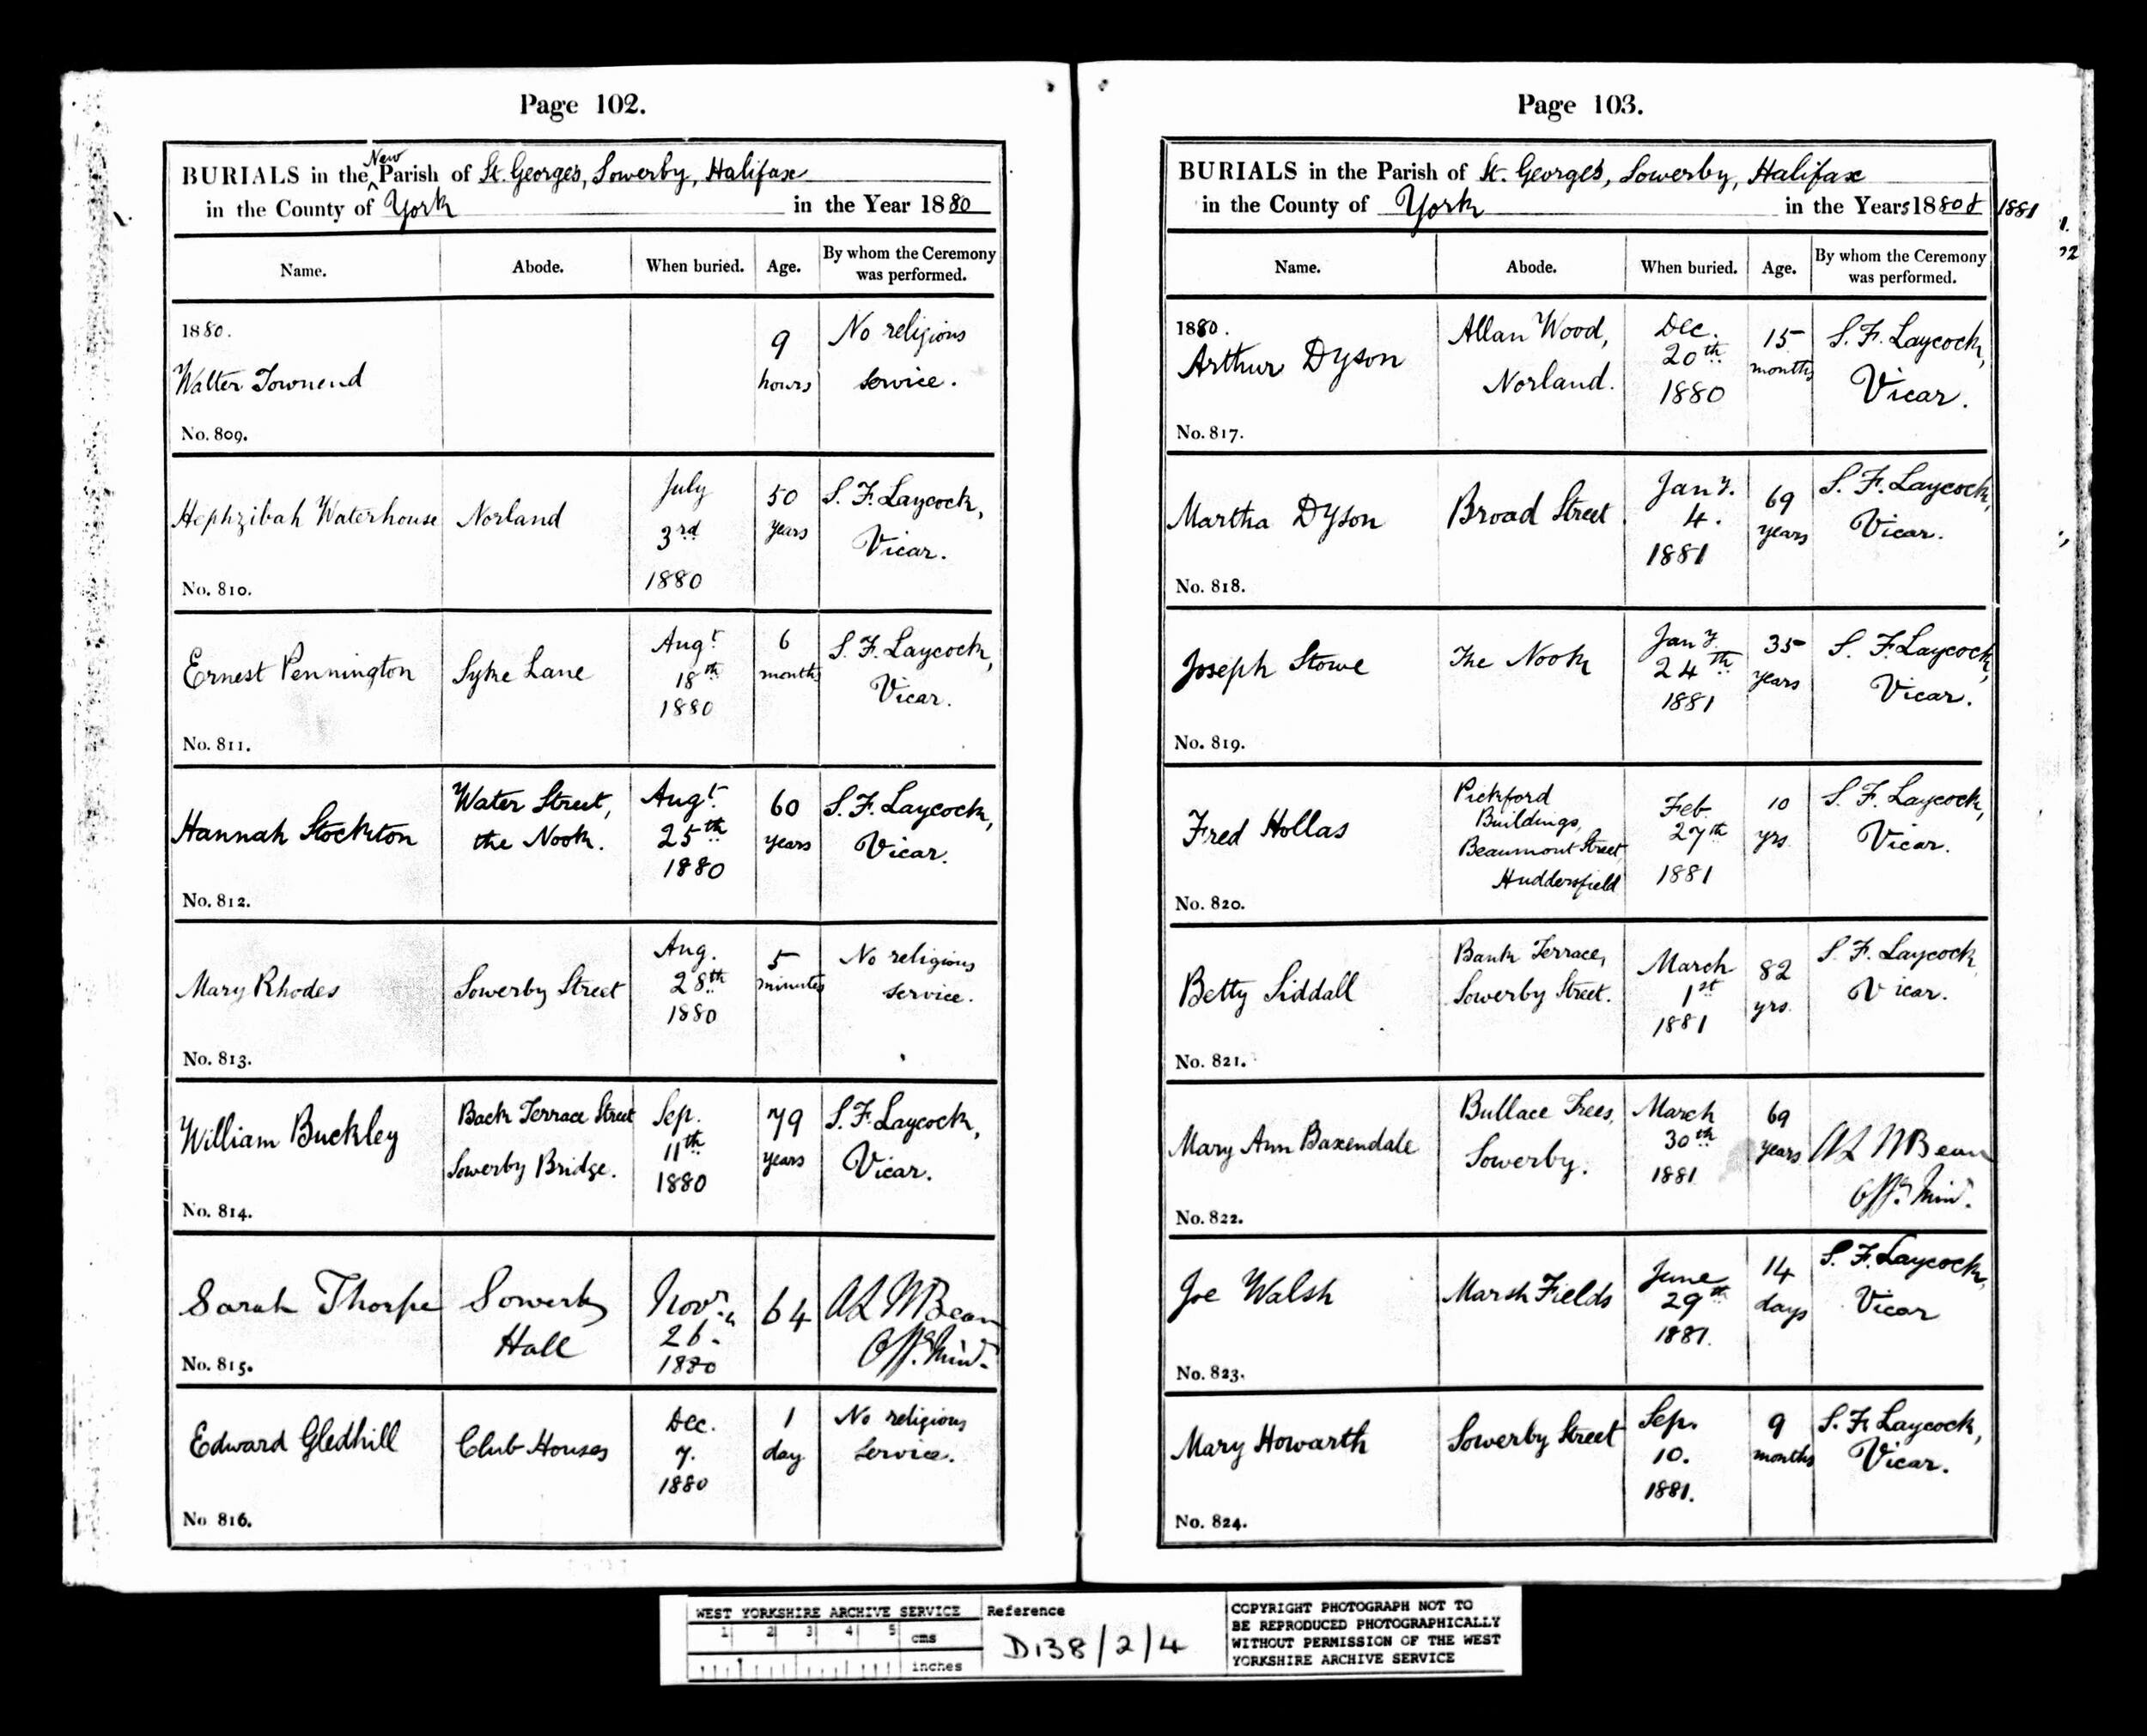 Page 102.
BURIALS in the New Parish of St. George's, Sowerby, Halifax
in the County of York in the Year 1880
Name. Abode. When buried. Age. By whom the Ceremony was performed.
1880.
Walter Townend
9 hours
No religious service.
No. 809.
Hephzibah Waterhouse
Norland
July 3rd 1880
50 years
S. F. Laycock, Vicar.
No. 810.
Ernest Pennington
Syke Lane
Augt 18th 1880
6 months
S. F. Laycock, Vicar.
No. 811.
Hannah Stockton
Water Street, the Nook.
Augt 25th 1880
60 years
S. F. Laycock, Vicar.
No. 812.
Mary Rhodes
Sowerby Street
Aug. 28th 1880
5 minutes
No religious service.
No. 813.
William Buckley
Back Terrace Street
Sowerby Bridge.
Sep. 11th 1880
79 years
S. F. Laycock, Vicar.
No. 814.
Sarah Thorpe
Sowerby Hall
Novr 26 1880
64
Offg Minr
No. 815.
Edward Gledhill
Club Houses
Dec. 7. 1880
1 day
No religious service.
No 816.
Page 103.
BURIALS in the Parish of St. George's, Sowerby, Halifax
in the County of York in the Years 1880 & 1881
Name. Abode. When buried. Age. By whom the Ceremony was performed.
1880.
Arthur Dyson
Allan Wood, Norland.
Dec. 20th 1880
15 months
S. F. Laycock, Vicar.
No. 817.
Martha Dyson
Broad Street.
Jany. 4. 1881
69 years
S. F. Laycock, Vicar.
No. 818.
Joseph Stowe
The Nook
Jany. 24th 1881
35 years
S. F. Laycock, Vicar.
No. 819.
Fred Hollas
Pickford Buildings,
Beaumont Street,
Huddersfield
Feb. 27th 1881
10 yrs.
S. F. Laycock, Vicar.
No. 820.
Betty Siddall
Bank Terrace,
Sowerby Street.
March 1st 1881
82 yrs.
S. F. Laycock, Vicar.
No. 821.
Mary Ann Baxendale
Bullace Trees,
Sowerby.
March 30th 1881
69 years
Offg Minr.
No. 822.
Joe Walsh
Marsh Fields
June 29th 1881.
14 days
S. F. Laycock, Vicar
No. 823.
Mary Howarth
Sowerby Street
Sep. 10. 1881.
9 months
S. F. Laycock, Vicar.
No. 824.
WEST YORKSHIRE ARCHIVE SERVICE
1 2 3 4 5 cms
inches
Reference
D138/2/4
COPYRIGHT PHOTOGRAPH NOT TO
BE REPRODUCED PHOTOGRAPHICALLY
WITHOUT PERMISSION OF THE WEST
YORKSHIRE ARCHIVE SERVICE